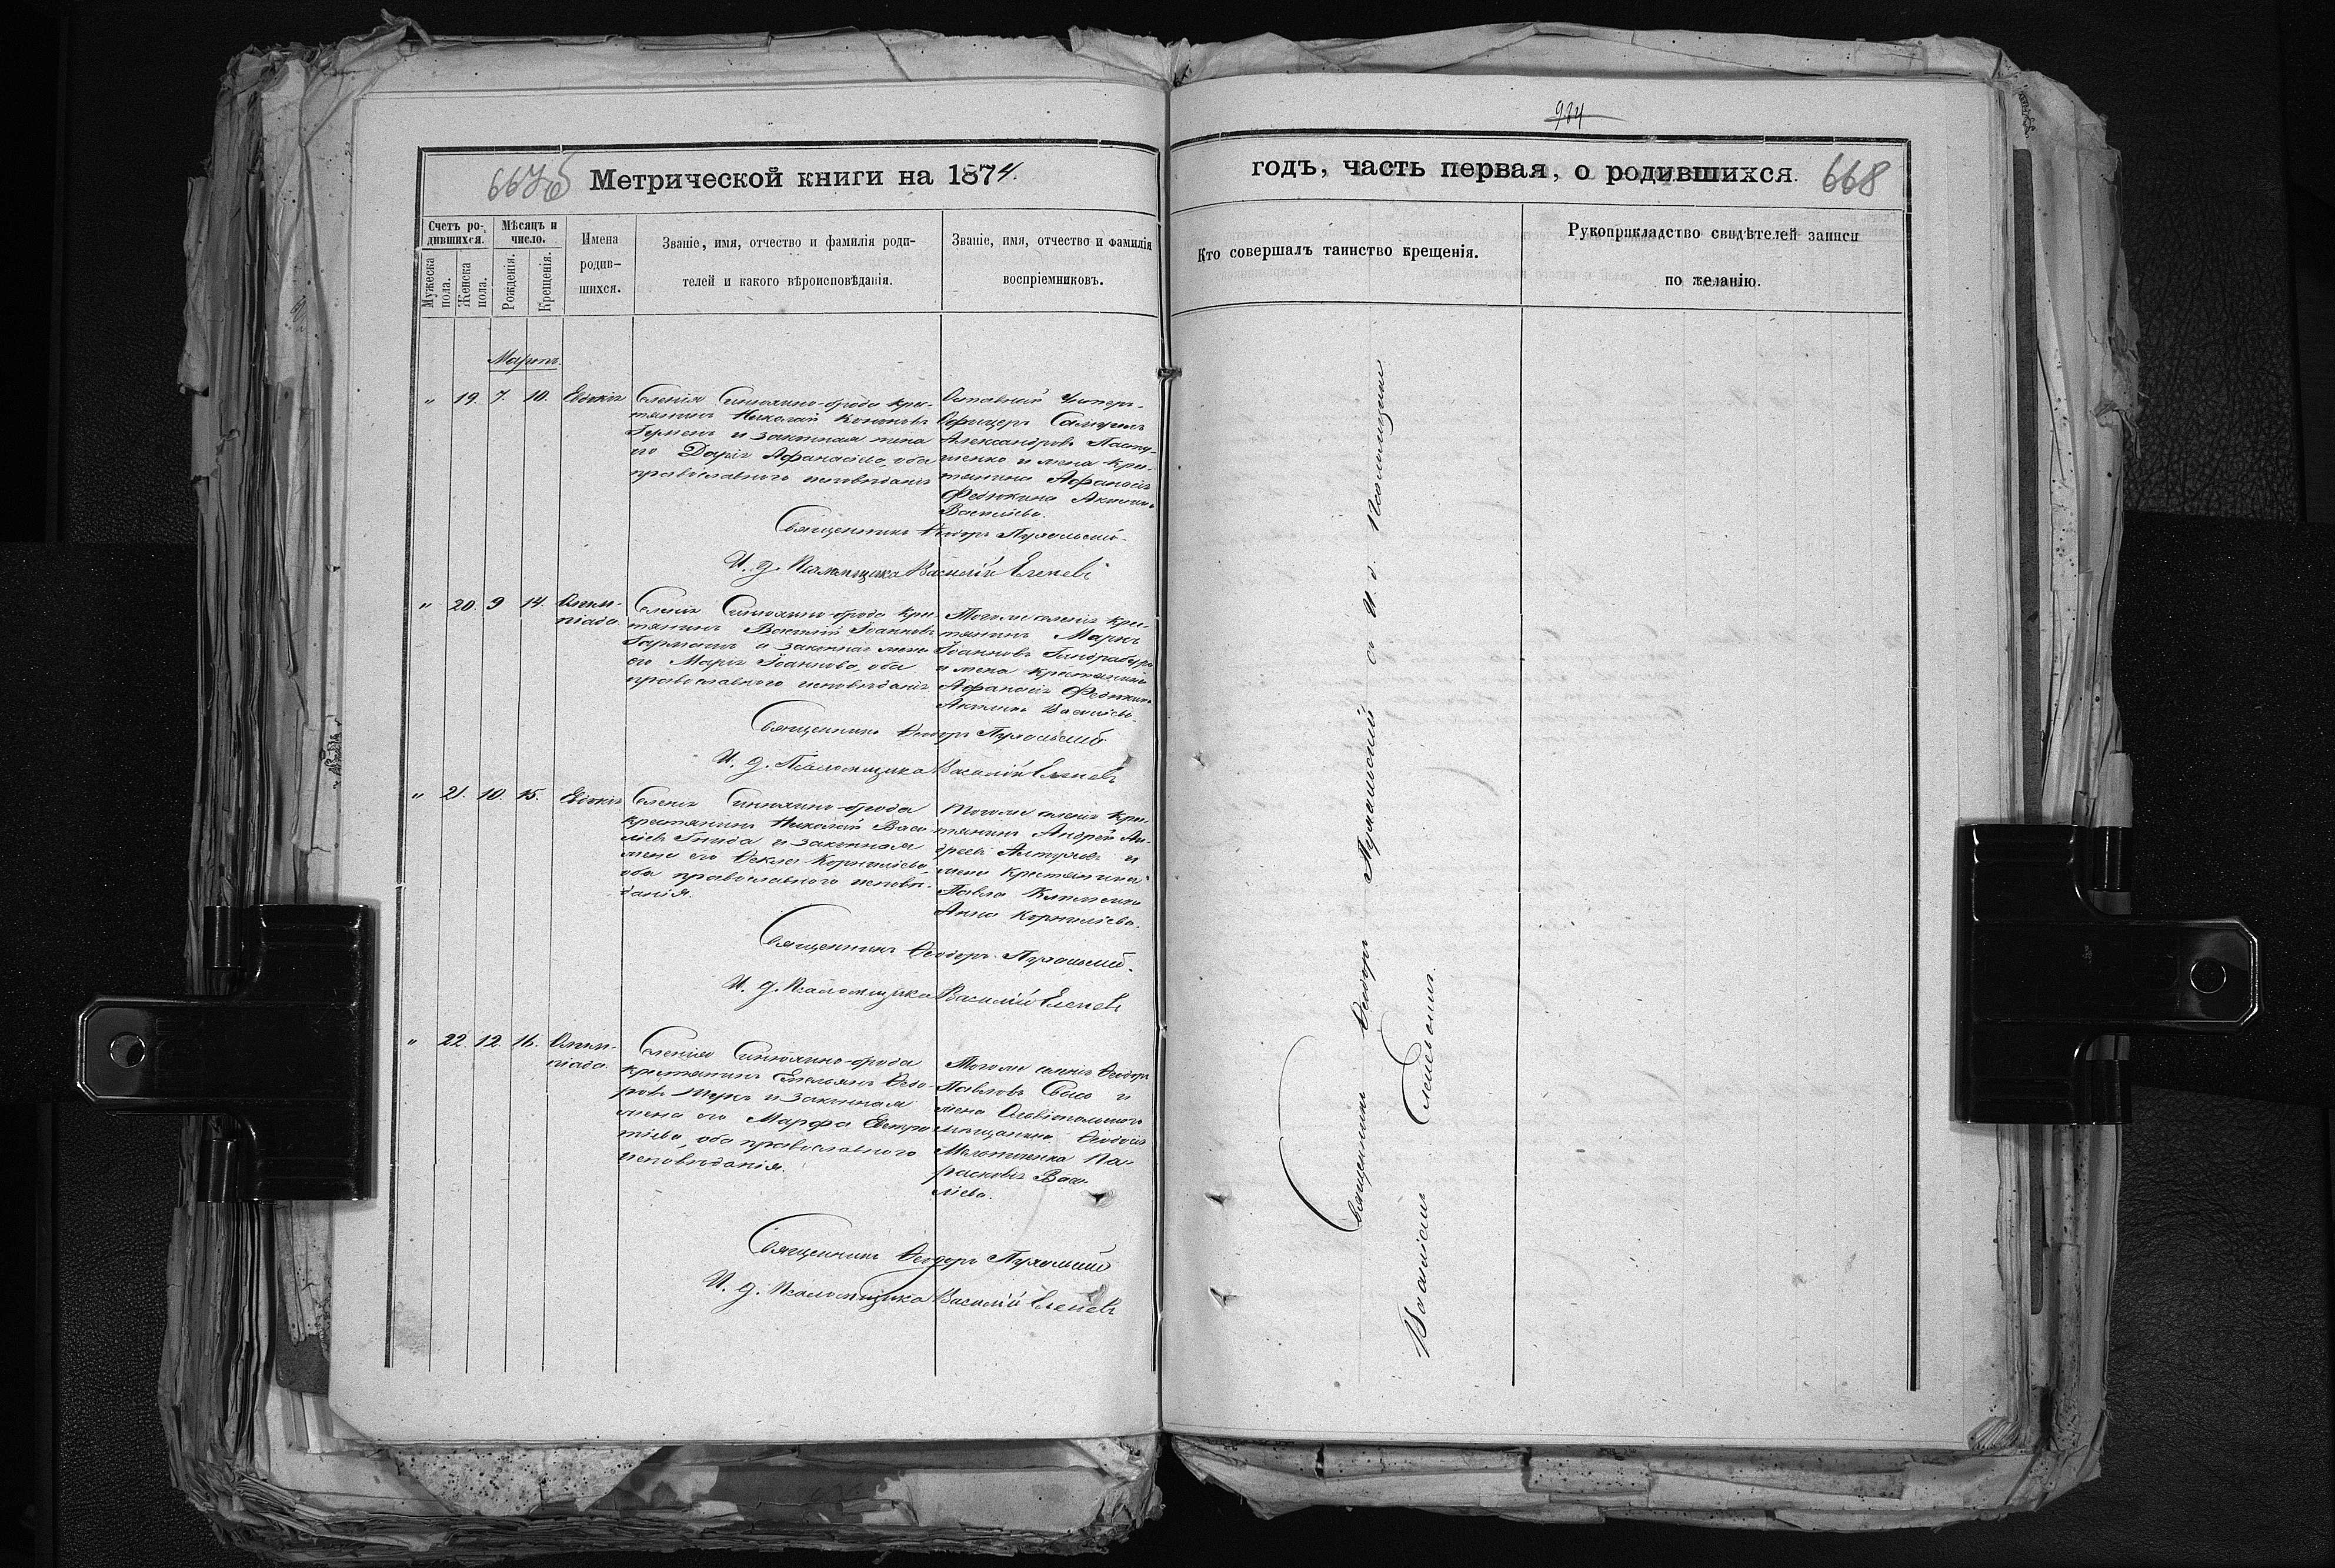 667об
Метрической книги на 1874.
Счетъ ро-
дившихся.
Мужеска
пола.
Женска
пола.
Мѣсяцъ и
число.
Рожденія.
Крещенія.
Имена
родив-
шихся.
Званіе, имя, отчество и фамилія роди-
телей и какого вѣроисповѣданія.
Званіе, имя, отчество и фамилія
воспріемниковъ.
Мартъ.
„ 19. 7. 10. Евдокія
Селенія Синюхино-брода кре-
стьянинъ Николай Кононовъ
и законная жена
его Дарія Афанасіева, оба
православнаго исповѣданія
Отставный Унтеръ-
Офицеръ Самуилъ
Александровъ Пасту-
шенко и жена кре-
стьянина Афанасія
Федюкина Акилина
Василіева.
Священникъ Ѳеодоръ
И. д. Псаломщика Василій Еленевъ
„ 20. 9 14. Олим-
піада.
Селенія Синюхино-брода кре-
стьянинъ Василій Іоанновъ
и законная жена
его Марія Іоаннова, оба
православнаго исповѣданія
Тогоже селенія кре-
стьянинъ Маркъ
Іоанновъ Гандрабура
и жена крестьянина
Афанасія Федюкина
Акилина Василіева.
Священникъ Ѳеодоръ
И. д. Псаломщика Василій Еленевъ
„ 21. 10. 15. Евдокія
Селенія Синюхино-брода
крестьянинъ Николай Васи-
ліевъ Гнида и законная
жена его Ѳекла Корниліева,
оба православнаго исповѣ-
данія.
Тогоже селенія кре-
стьянинъ Андрей Ан-
дреевъ Алтуховъ и
жена крестьянина
Павла
Анна Корниліева.
Священникъ Ѳеодоръ
И. д. Псаломщика Василій Еленевъ
„ 22. 12. 16. Олим-
піада.
Селенія Синюхино-брода
крестьянинъ Емельянъ Ѳедо-
ровъ и законная
жена его Марфа Евстра-
тіева, оба православнаго
исповѣданія.
Тогоже селенія Ѳеодоръ
Павловъ и
жена Ольвіопольскаго
мѣщанина Ѳеодосія
Па-
раскева Васи-
ліева.
Священникъ Ѳеодоръ
И. д. Псаломщика Василій Еленевъ
годъ, часть первая, о родившихся.
668
Кто совершалъ таинство крещенія.
Рукоприкладство свидѣтелей записи
по желанію.
Священникъ Ѳеодоръ съ И. д. Псаломщика
Василіемъ Еленевымъ.